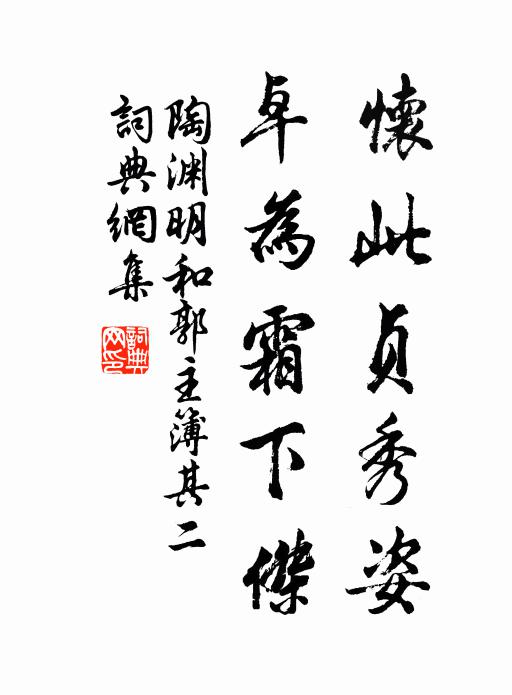 懷此貞秀姿
卓為霜下傑
陶渊明和郭主簿其二
詞典網集
詞典网印